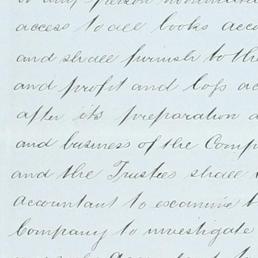 access to all books acco
and shall furnish to th
and profit and loss ac
after its preparation a
and business of the Comp
and the Trustees shall
accountant to examine
Company to investigate